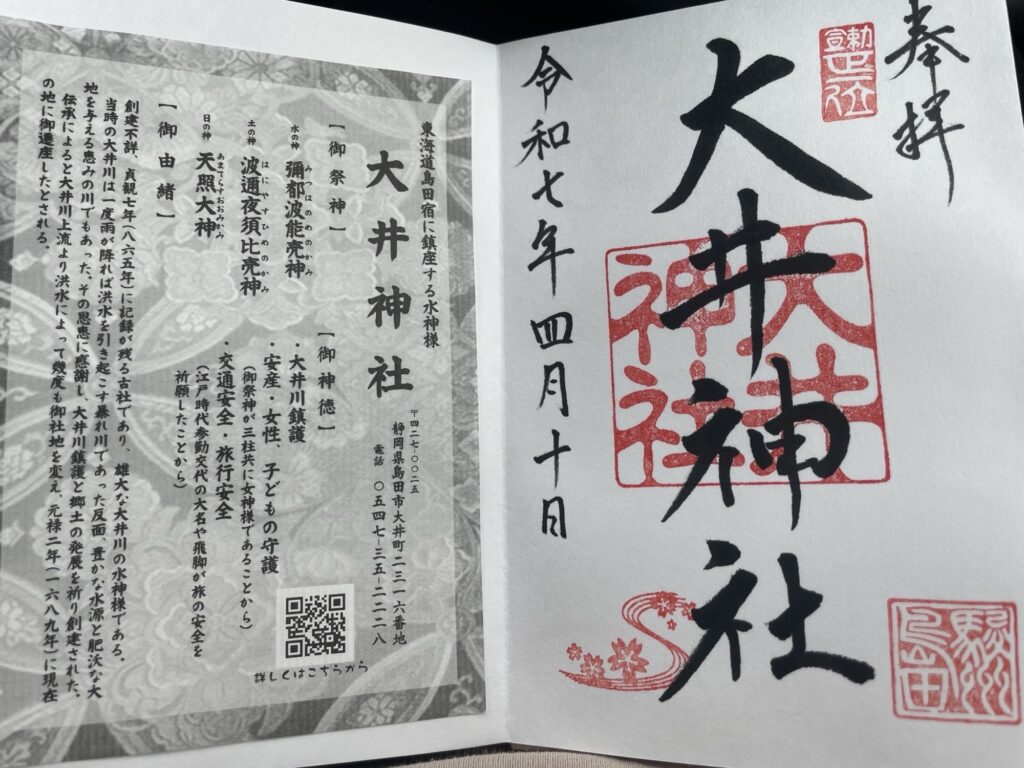 奉拝
勅宣正一位
大井神社
大井神社
駿州島田
令和七年四月十日
東海道島田宿に鎮座する水神様
大井神社
〒四二七-〇〇二五
静岡県島田市大井町二三一六番地
電話 〇五四七-三五-二二二八
【御祭神】
水の神 彌都波能売神 みつはのめのかみ
土の神 波邇夜須比売神 はにやすひめのかみ
日の神 天照大神 あまてらすおおみかみ
【御神徳】
・大井川鎮護
・安産・女性、子どもの守護
(御祭神が三柱共に女神様であることから)
・交通安全・旅行安全
(江戸時代参勤交代の大名や飛脚が旅の安全を
祈願したことから)
【御由緒】
創建不詳、貞観七年(八六五年)に記録が残る古社であり、雄大な大井川の水神様である。
当時の大井川は一度雨が降れば洪水を引き起こす暴れ川であった反面、豊かな水源と肥沃な大
地を与える恵みの川でもあった。その恩恵に感謝し、大井川鎮護と郷土の発展を祈り創建された。
伝承によると大井川上流より洪水によって幾度も御社地を変え、元禄二年(一六八九年)に現在
の地に御遷座したとされる。
詳しくはこちらから